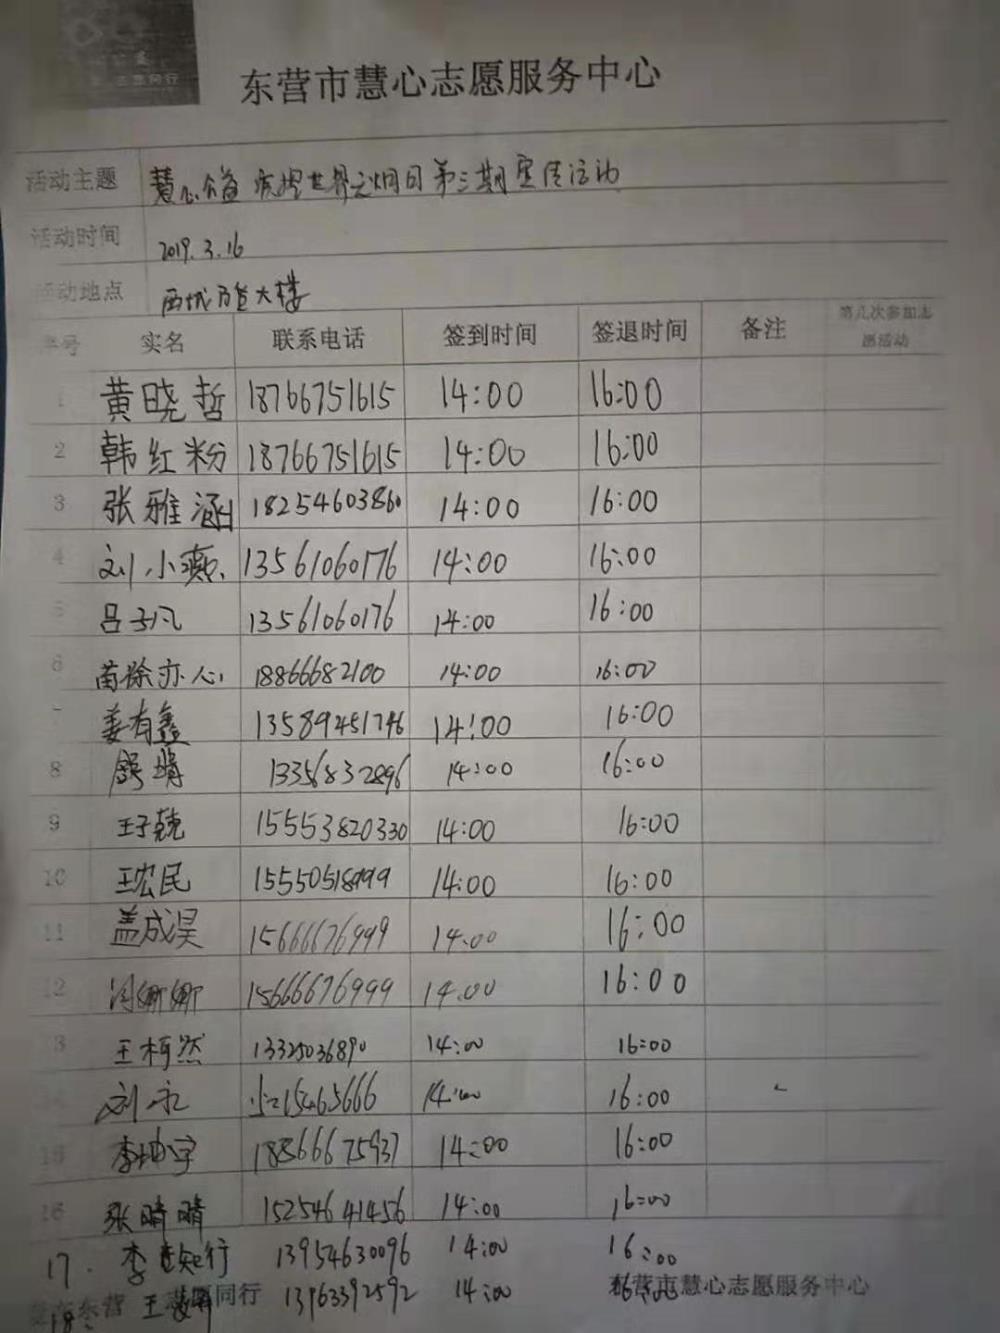 东营市慧心志愿服务中心
活动主题 慧心公益 疾控世界无烟日第三期宣传活动
活动时间 2019.3.16
活动地点 西城百货大楼
序号 实名 联系电话 签到时间 签退时间 备注 第几次参加志愿活动
1 黄晓哲 18766751615 14:00 16:00
2 韩红粉 18766751615 14:00 16:00
3 张雅涵 18254603860 14:00 16:00
4 刘小燕 13561060176 14:00 16:00
5 吕子凡 13561060176 14:00 16:00
6 苗徐亦心 18866682100 14:00 16:00
7 姜有鑫 13589451746 14:00 16:00
8 13356832896 14:00 16:00
9 王子兢 15553820330 14:00 16:00
10 王宏民 14:00 16:00
11 盖成昊 15666676999 14:00 16:00
12 娜娜 15666676999 14:00 16:00
13 王柯然 13325036890 14:00 16:00
刘永 14:00 16:00
15 李坤宇 18866675937 14:00 16:00
16 张晴晴 15254641456 14:00 16:00
17. 李知行 13954630096 14:00 16:00
18. 王 13963392592 14:00
东营 志愿同行 东营市慧心志愿服务中心